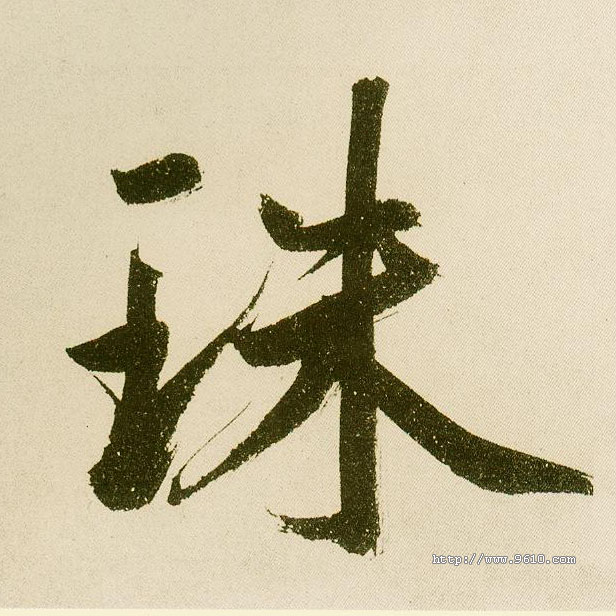 珠
http://www.9610.com